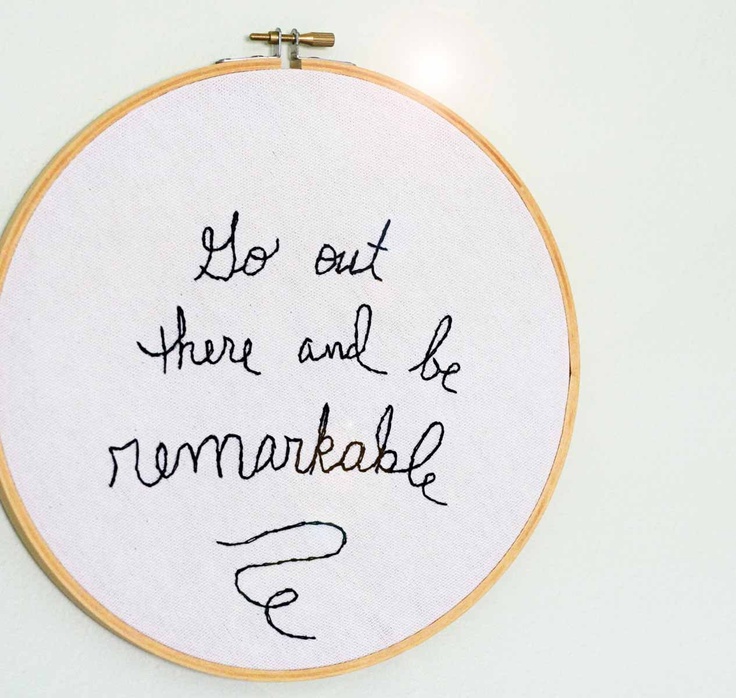 Go out
there and be
remarkable